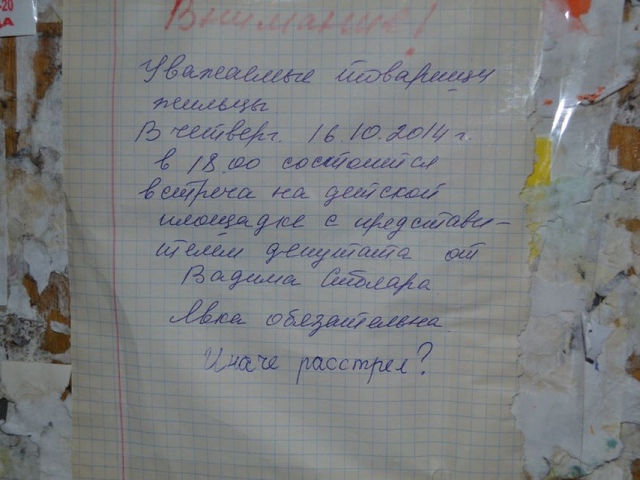 -20
ДА
Внимание!
Уважаемые товарищи
жильцы
В четверг. 16.10.2014 г.
в 18.00 состоится
встреча на детской
площадке с представи-
телем депутата от
Вадима Столара
Явка обязательна
Иначе расстрел?